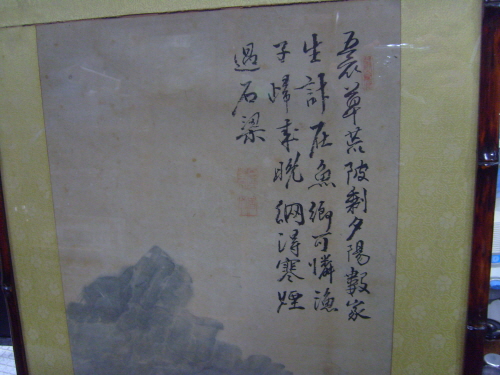 衰草荒陂剩夕陽數家
生計在魚鄉可憐漁
子歸來晚網得寒煙
過石梁